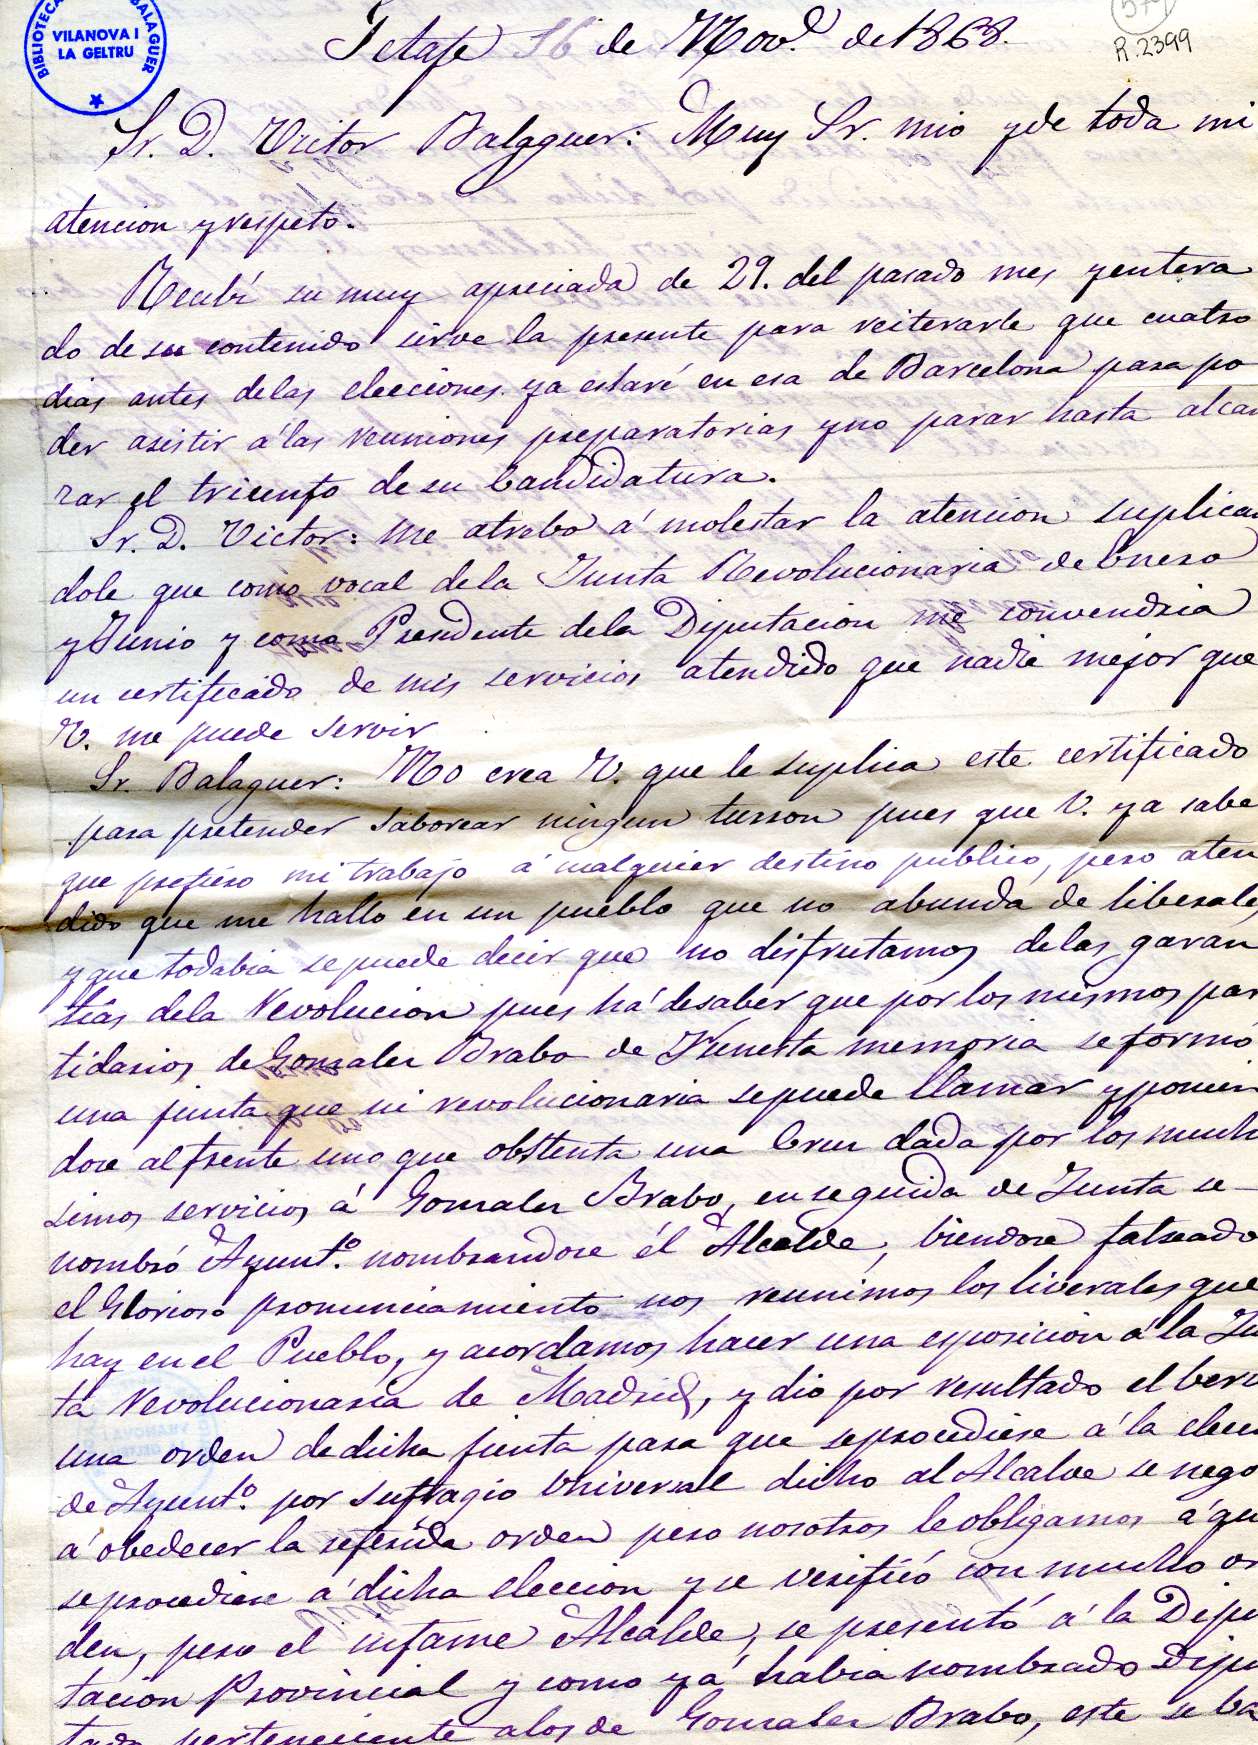 BIBLIOTECA BALAGUER
VILANOVA I
LA GELTRU
574
R.2399
Jetafe 16 de Nov.e de 1868.
Sr. D. Victor Balaguer: Muy Sr. mio y de toda mi
atencion y respeto.
Recibí su muy apreciada de 29. del pasado mes y entera
do de su contenido sirve la presente para reiterarle que cuatro
dias antes delas elecciones ya estaré en esa de Barcelona para po
der asistir á las reuniones preparatorias y no parar hasta alcan
zar el triunfo de su Candidatura.
Sr. D. Victor: me atrebo á molestar la atencion suplican
dole que como vocal dela Junta Revolucionaria de Enero
y Junio y como Presidente dela Diputacion me convendria
un certificado de mis servicios atendido que nadie mejor que
V. me puede servir
Sr. Balaguer: No crea V. que le suplica este certificado
para pretender saborear ningun turron pues que V. ya sabe
que prefiero mi trabajo á cualquier destino publico, pero aten
dido que me hallo en un pueblo que no abunda de liberales
y que todabia se puede decir que no disfrutamos delas garan
tias dela Revolucion pues há desaber que por los mismos par
tidarios de Gonzalez Brabo de Funesta memoria se formó
una junta que ni revolucionaria sepuede llamar y ponien
dose alfrente uno que obstenta una Cruz dada por los muchi
simos servicios á Gonzalez Brabo, en seguida de Junta se
nombró Ayunt.o nombrandose él Alcalde, biendose falseado
el Glorioso pronunciamiento nos reunimos los liverales que
hay en el Pueblo, y acordamos hacer una exposicion á la Jun
ta Revolucionaria de Madrid, y dio por resultado el
una orden de dicha junta para que seprocediese á la elecc
de Ayunt.o por sufragio Universal dicho al Alcalde se nego
á obedecer la referida orden pero nosotros le obligamos á qu
seprocediese á dicha eleccion y se verifició con mucho or
den, pero el infame Alcalde, se presentó á la Dipu
tacion Provincial y como yá habia nombrado Dipu
tado perteneciente alos de Gonzalez Brabo, este se ba